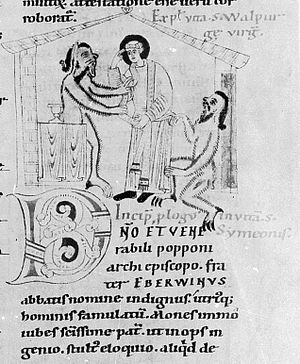 roborat̄. Explt̄ uita. s. Walpur
ge uirḡ.
Incip̄ ꝓlogꝰ in uitā. s.
Symeonis.
DÑO ET VENE
rabili popponi
archi episcopo. fra
ter EBERWINVS
abbatis nomine indignus. utriq;
hominis famulatū. Mones immo
iubes sc̄issime pat̄. ut in ops in
genio. stulto eloquio. aliqd de